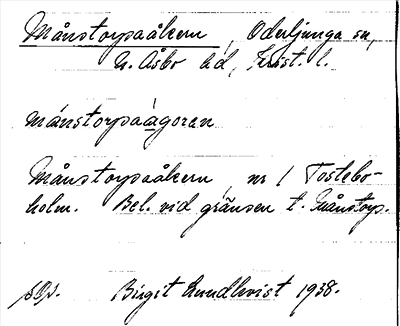 Månstorpaåkern, Oderljunga sn,
N. Åsbo hd, Krist. l.
månstorpaågoran
Månstorpaåkern, nr 1 Tostebo-
holm. Bel. vid gränsen t. Månstorp.
Birgit Lundkvist 1938.